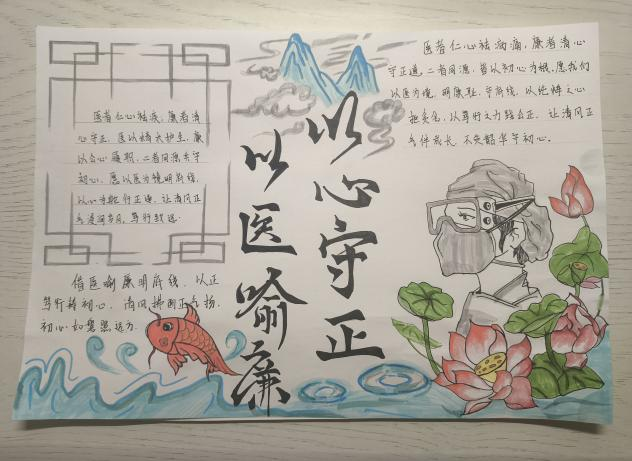 以心守正
以医喻廉
医者仁心祛病痛，廉者清心
守正道。二者同源，皆以初心为根。愿我们
以医为镜，明廉耻，守底线，以纯粹之心
拒贪念，以笃行之力践公正，让清风正
气伴成长，不负韶华守初心。
医者仁心祛疾，廉者清
心守正。医以精术护生，廉
以公心履职，二者同源共守
初心。愿以医为镜明底线，
以心为舵行正道，让清风正
气浸润岁月，笃行致远。
借医喻廉明底线，以正
笃行铸初心。清风拂面正气扬，
初心如磐照远方。